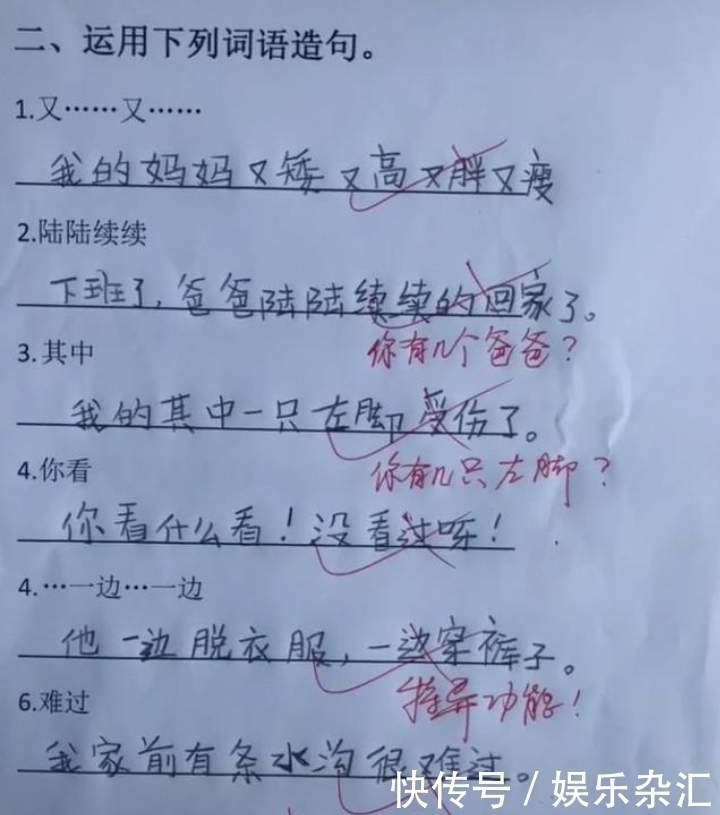 二、运用下列词语造句。
1.又……又……
我的妈妈又矮又高又胖又瘦
2.陆陆续续
下班了,爸爸陆陆续续的回家了。
你有几个爸爸?
3.其中
我的其中一只左脚受伤了。
你有几只左脚?
4.你看
你看什么看!没看过呀!
4.…一边…一边
他一边脱衣服,一边穿裤子。
特异功能!
6.难过
我家前有条水沟很难过。
快传号/娱乐杂汇